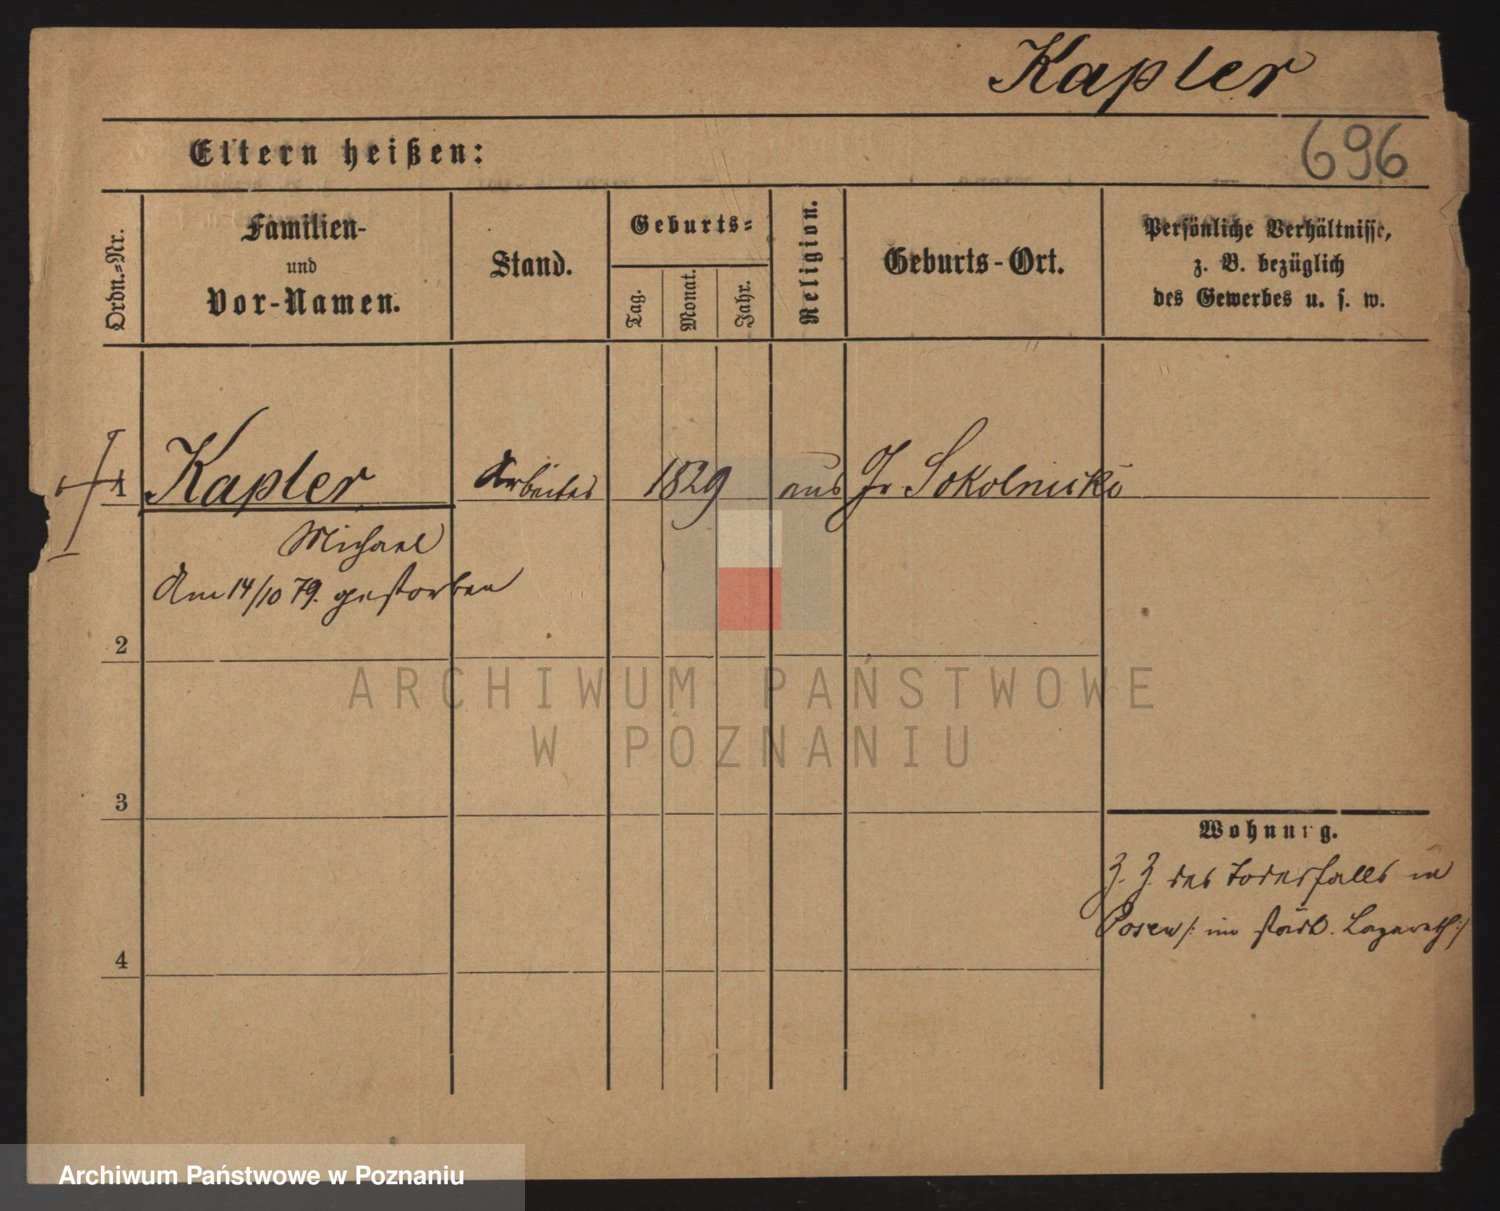 Kapler
696
Eltern heißen:
Ordn.-Nr.
Familien-
und
Vor-Namen.
Stand.
Geburts-
Tag.
Monat.
Jahr.
Religion.
Geburts-Ort.
Persönliche Verhältnisse,
z. B. bezüglich
des Gewerbes u. s. w.
1 Kapler Arbeiter 1829 aus Gr Sokolniki
Michael
Am 14/10 79. gestorben
2
ARCHIWUM PAŃSTWOWE
W POZNANIU
3
Wohnung.
Z. Z. des Todesfalls in
Posen /: im städt. Lazareth :/
4
Archiwum Państwowe w Poznaniu